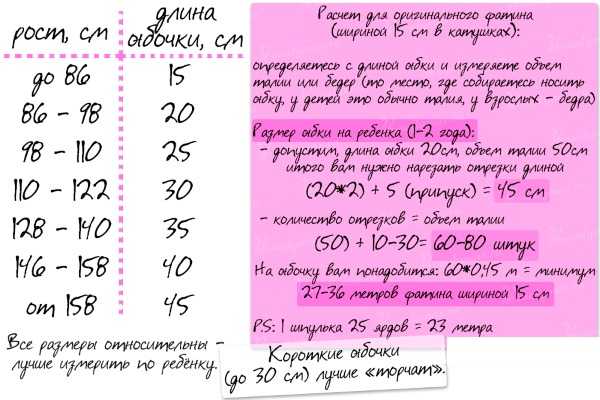 рост, см
длина
юбочки, см
до 86 15
86 - 98 20
98 - 110 25
110 - 122 30
128 - 140 35
146 - 158 40
от 158 45
Все размеры относительны -
лучше измерить по ребёнку.
Расчет для оригинального фатина
(шириной 15 см в катушках):
определяетесь с длиной юбки и измеряете объем
талии или бедер (то место, где собираетесь носить
юбку, у детей это обычно талия, у взрослых - бедра)
Размер юбки на ребенка (1-2 года):
- допустим, длина юбки 20см, объем талии 50см
итого вам нужно нарезать отрезки длиной
(20*2) + 5 (припуск) = 45 см
- количество отрезков = объем талии
(50) + 10-30= 60-80 штук
На юбочку вам понадобится: 60*0,45 м = минимум
27-36 метров фатина шириной 15 см
P.S: 1 шпулька 25 ярдов = 23 метра
Короткие юбочки
(до 30 см) лучше «торчат».